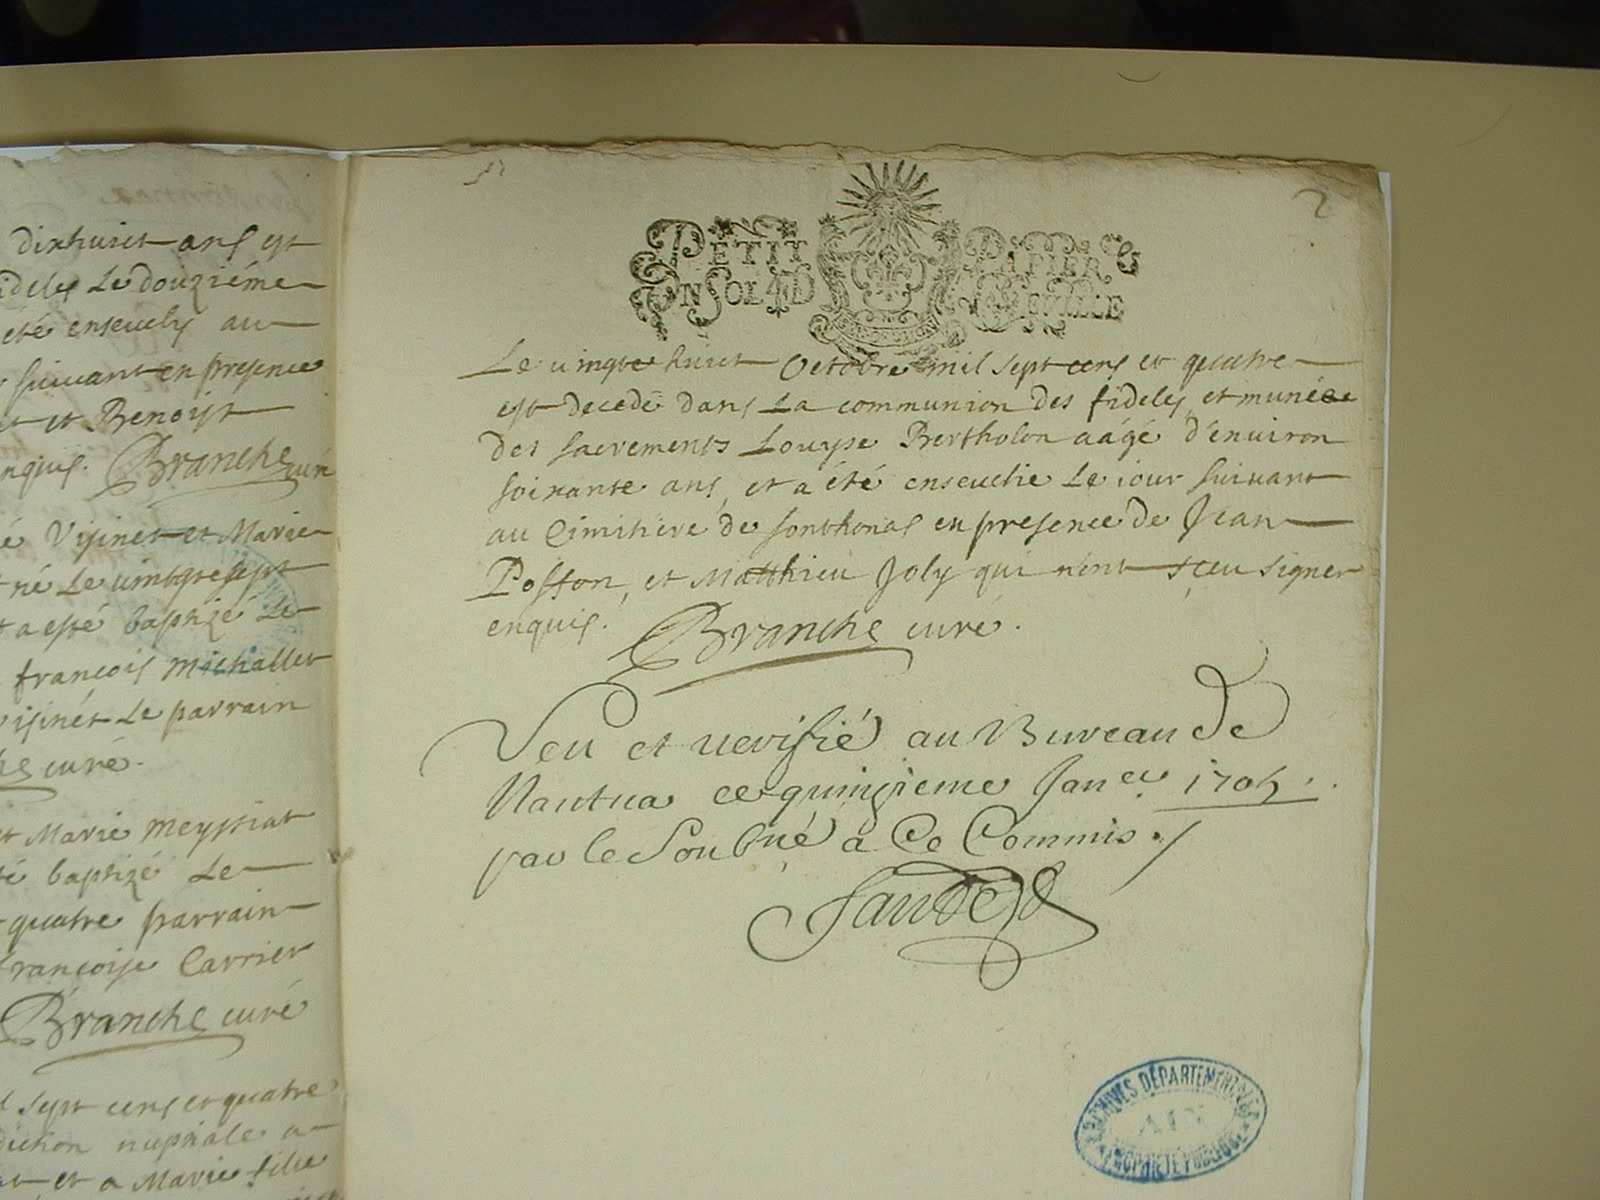 dixhuict ans est
fideles Le douziéme
eté ensevely au
suivant en presence
et Benoist
enquis. Branche curé
Visinet et Marie
né Le vintgtesept
a esté baptizé Le
françois Michallet
visinet Le parrain
curé.
et Marie Meyssiat
baptizé Le
quatre parrain
françoise Carrier
Branche curé
sept cens et quatre
nuptiale a
et a Marie fille
2
PETIT PAPIER
UN SOL 4 D LA FEUILLE
Le vingte huict Octobre mil sept cens et quatre
est decedé dans La communion des fideles, et muniée
des sacrements Louyse Bertholon aagé d'environ
soixante ans, et a été ensevelie Le jour suivant
au Cimitiere de sonthonas en presence de Jean
Posson, et Matthieu Joly qui n'ont sçeu signer
enquis. Branche curé.
Veu et verifié au Bureau de
Nantua ce quinzieme Janer 1705.
par le Soubné à Ce Commis
ARCHIVES DÉPARTEMENTALES
AIN
PROPRIÉTÉ PUBLIQUE